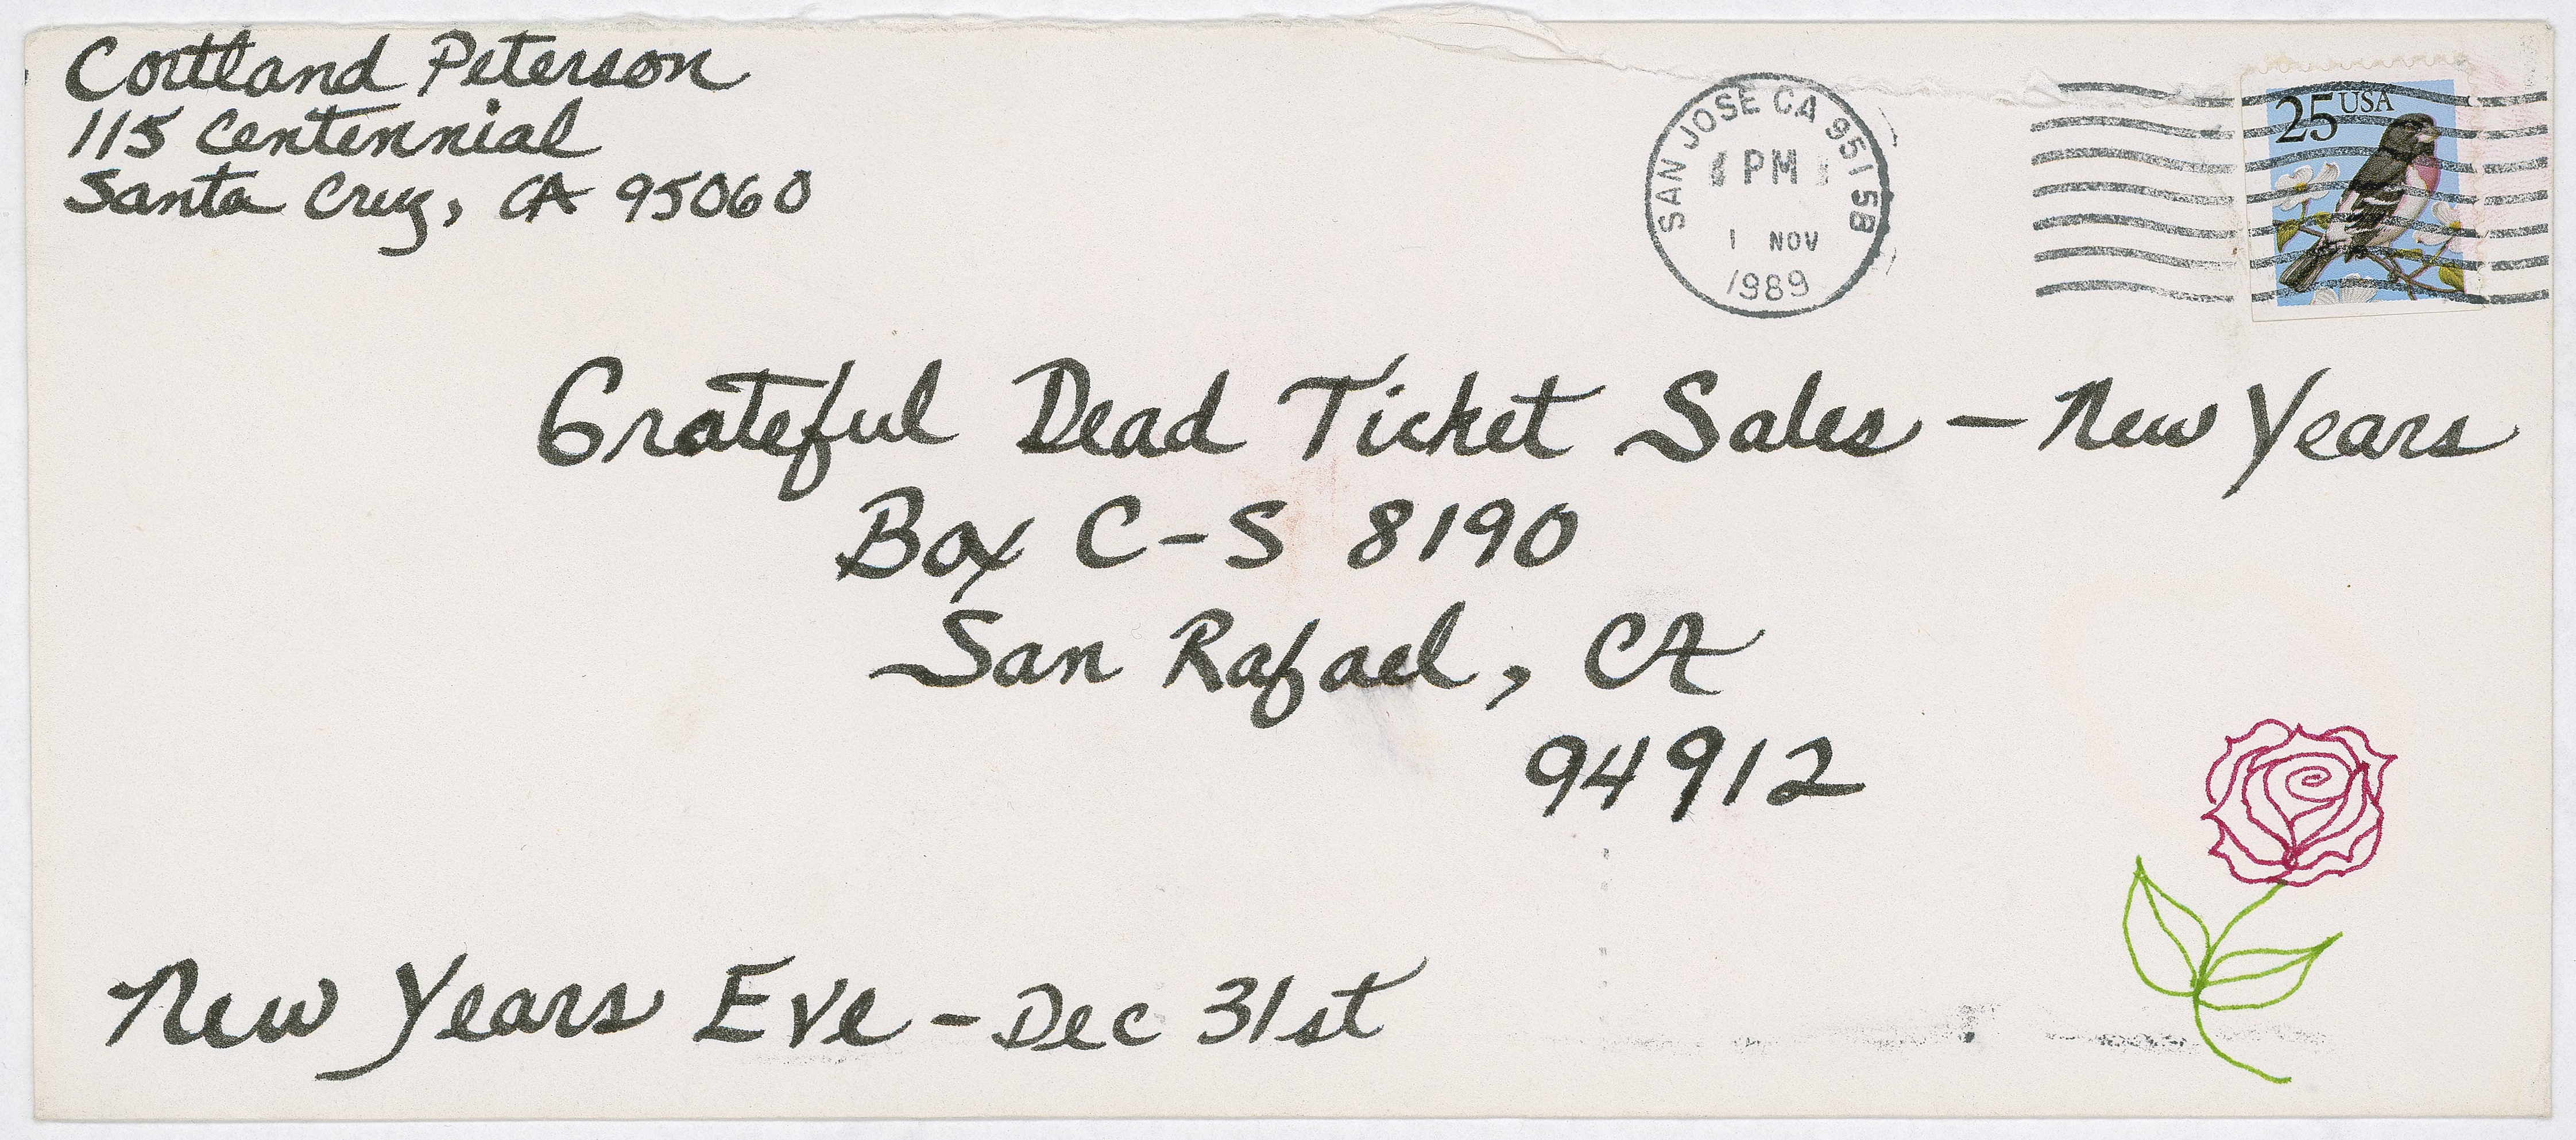 Cortland Peterson
115 Centennial
Santa Cruz, CA 95060
SAN JOSE CA 951 5B
PM
1 NOV
1989
25 USA
Grateful Dead Ticket Sales - New Years
Box C-S 8190
San Rafael, CA
94912
New Years Eve - Dec 31st